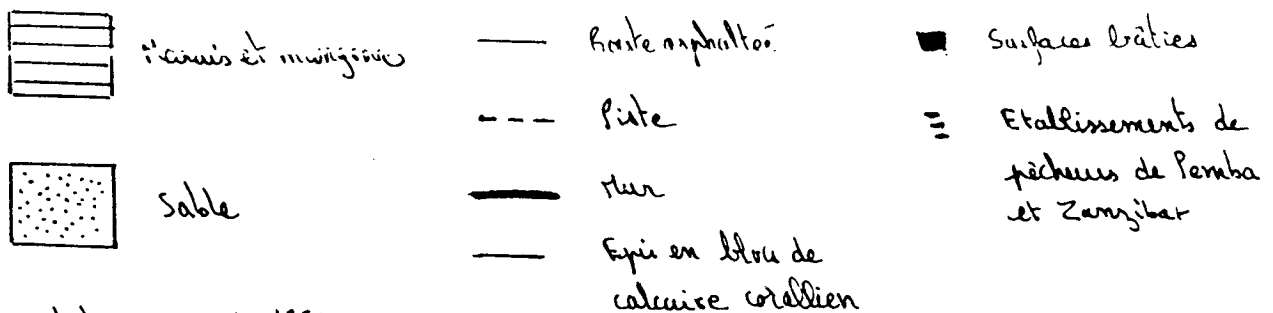 Marais et mangrove
Sable
Route asphaltée
Piste
Mur
Epis en blocs de
calcaire corallien
Surfaces bâties
Etablissements de
pêcheurs de Pemba
et Zanzibar